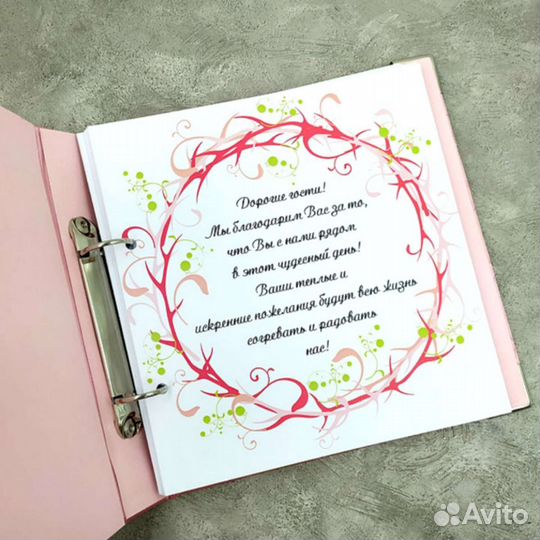 Дорогие гости!
Мы благодарим Вас за то,
что Вы с нами рядом
в этот чудесный день!
Ваши теплые и
искренние пожелания будут всю жизнь
согревать и радовать
нас!
Avito